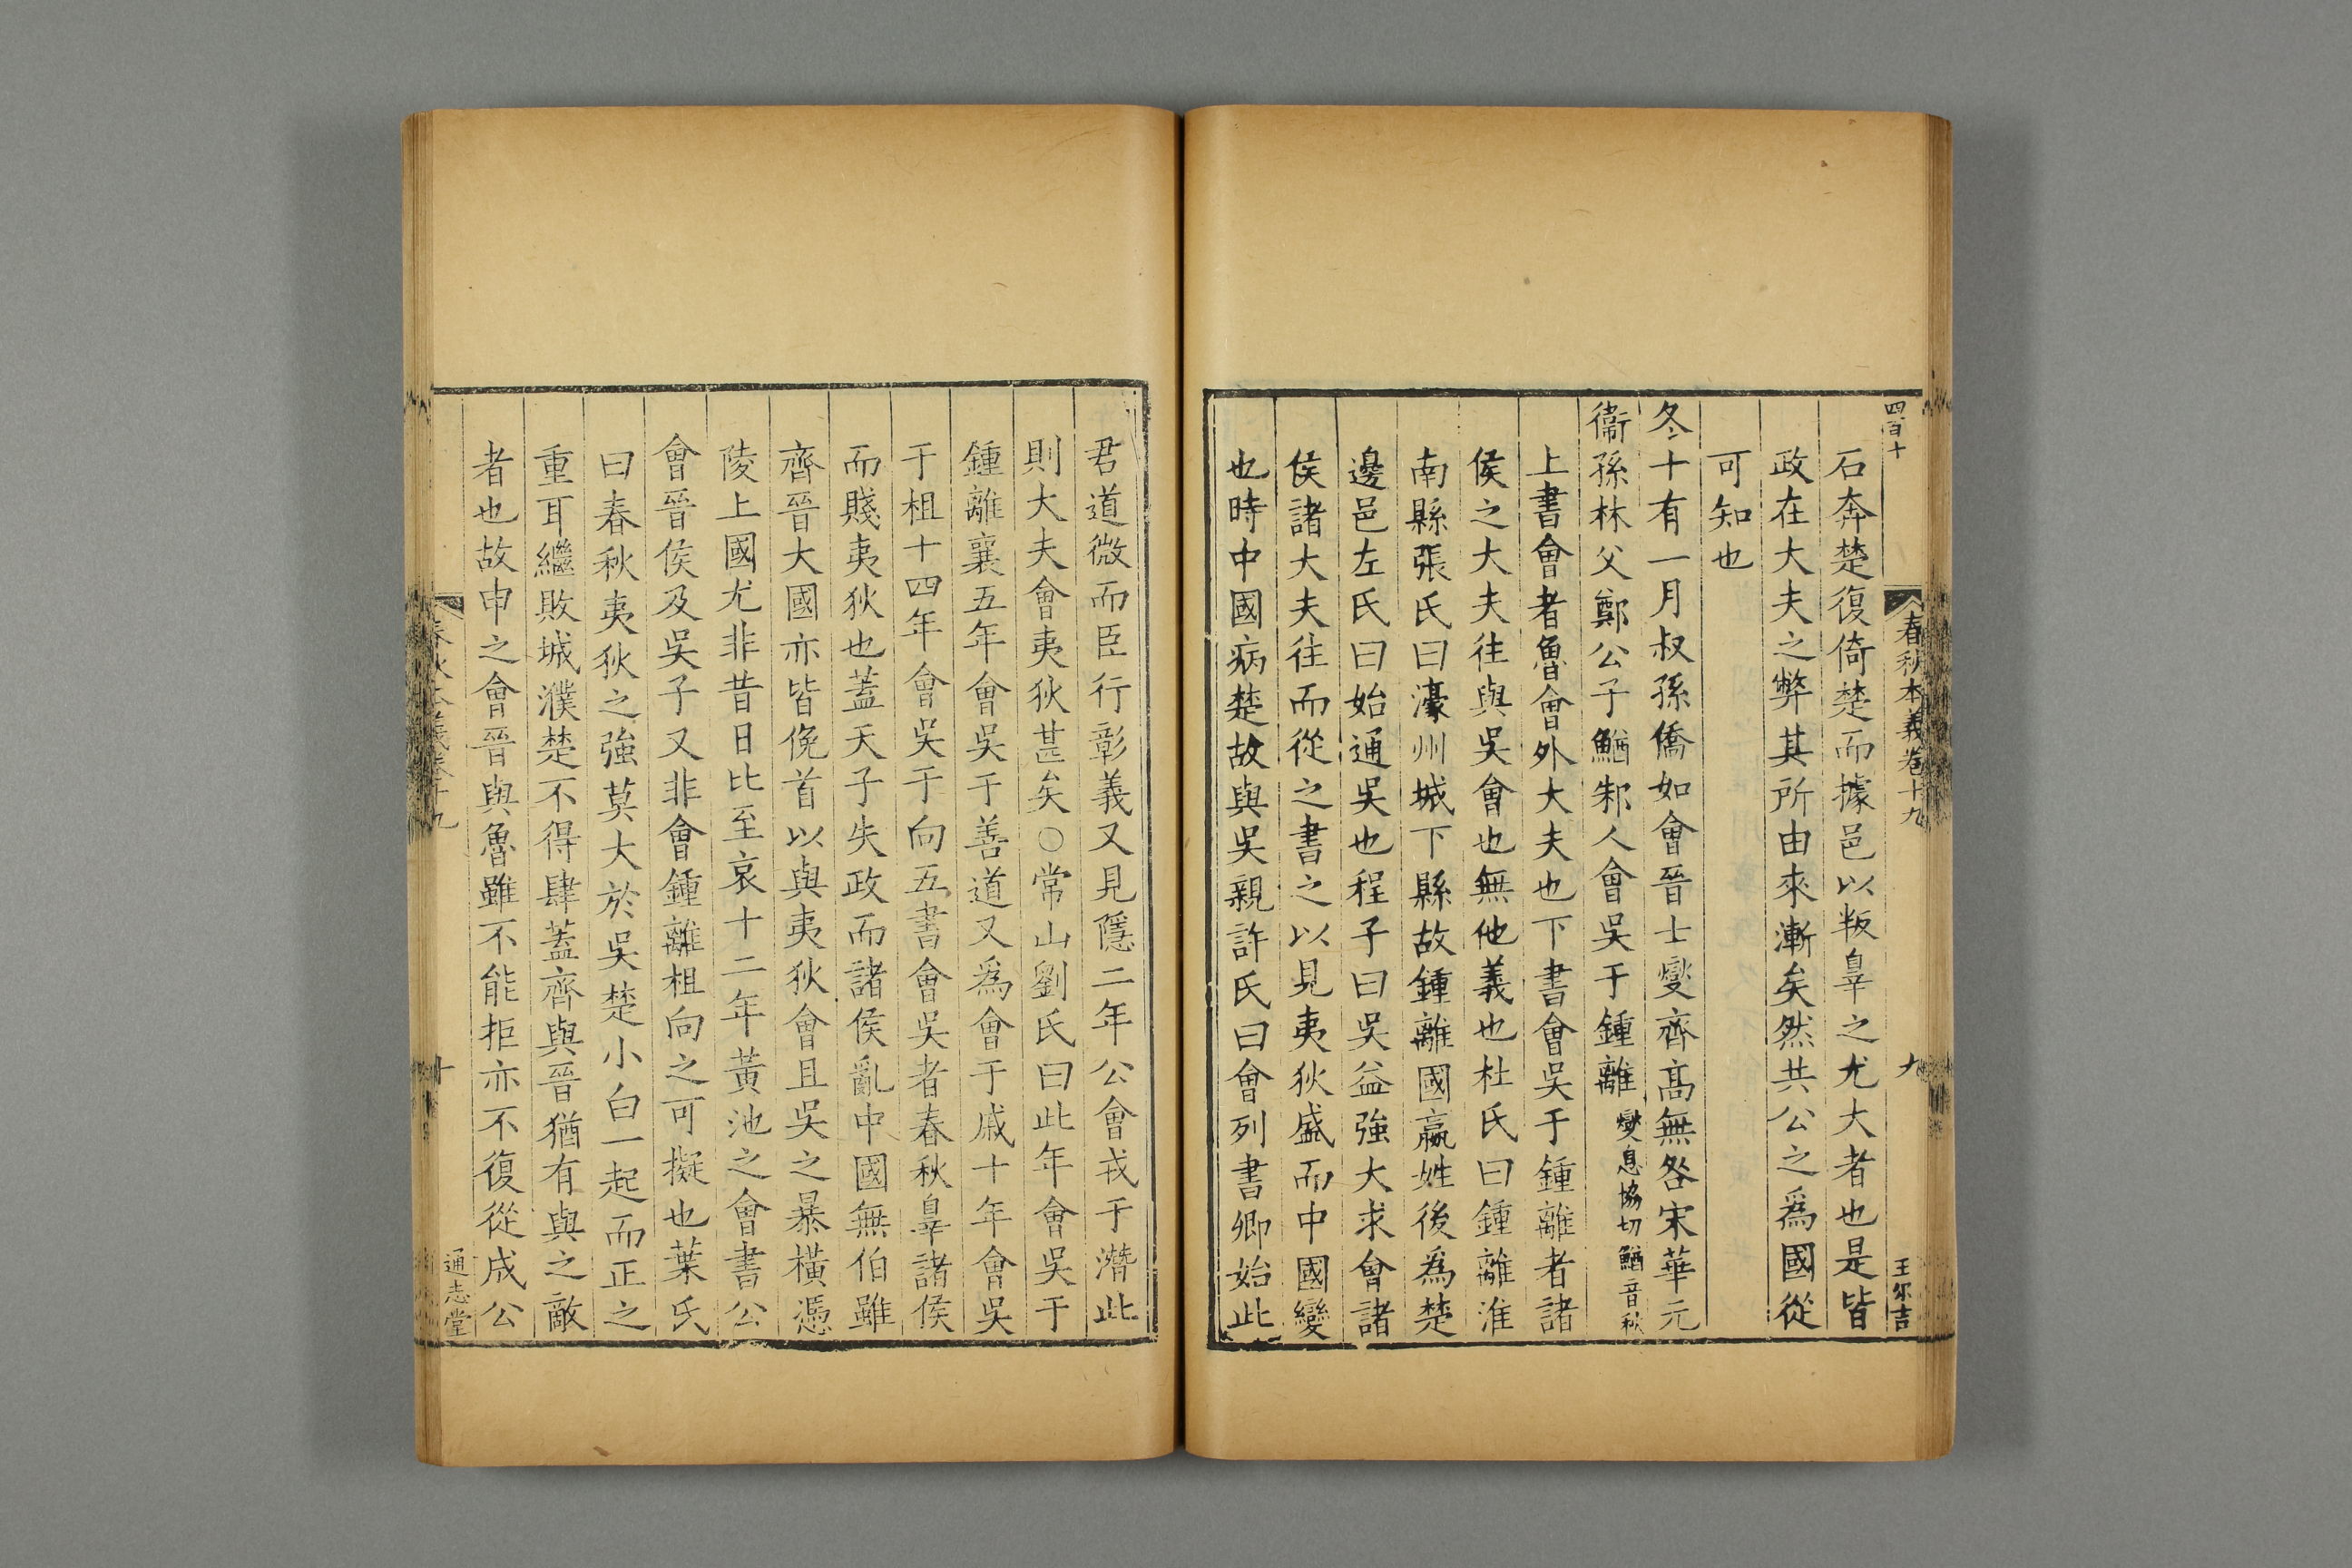 四百十
春秋本義卷十九
九
王尔吉
石奔楚復倚楚而據邑以叛辠之尤大者也是皆
政在大夫之弊其所由來漸矣然共公之爲國從
可知也
冬十有一月叔孫僑如會晉士燮齊髙無咎宋華元
衞孫林父鄭公子鰌邾人會吳于鍾離燮息協切鰌音秋
上書會者魯會外大夫也下書會吳于鍾離者諸
侯之大夫往與吳會也無他義也杜氏曰鍾離淮
南縣張氏曰濠州城下縣故鍾離國嬴姓後爲楚
邊邑左氏曰始通吳也程子曰吳益強大求會諸
侯諸大夫往而從之書之以見夷狄盛而中國變
也時中國病楚故與吳親許氏曰會列書卿始此
君道微而臣行彰義又見隱二年公會戎于潛此
則大夫會夷狄甚矣○常山劉氏曰此年會吳于
鍾離襄五年會吳于善道又爲會于戚十年會吳
于柤十四年會吳于向五書會吳者春秋辠諸侯
而賤夷狄也蓋天子失政而諸侯亂中國無伯雖
齊晉大國亦皆俛首以與夷狄會且吳之暴橫憑
陵上國尤非昔日比至哀十二年黃池之會書公
會晉侯及吳子又非會鍾離柤向之可擬也葉氏
曰春秋夷狄之強莫大於吳楚小白一起而正之
重耳繼敗城濮楚不得肆蓋齊與晉猶有與之敵
者也故申之會晉與魯雖不能拒亦不復從成公
春秋本義卷十九
十
通志堂